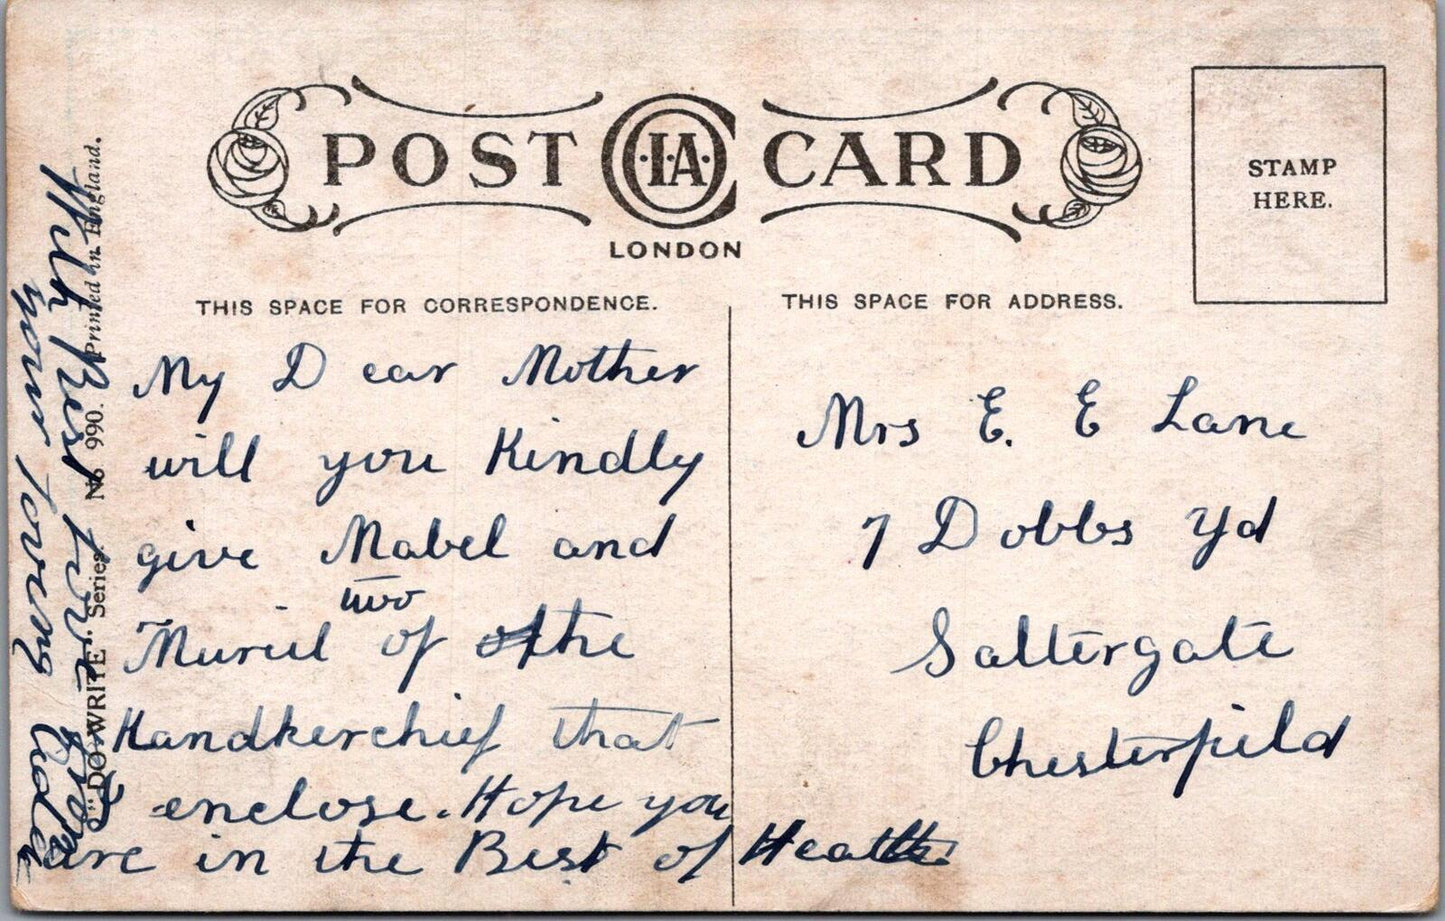 POST CARD
C.I.A.
LONDON
STAMP
HERE.
THIS SPACE FOR CORRESPONDENCE.
THIS SPACE FOR ADDRESS.
My Dear Mother
will you Kindly
give Mabel and
two
Muriel of the
Handkerchief that
I enclose. Hope you
are in the Best of Health.
With Best Love From
your loving
Mrs E. E Lane
7 Dobbs Yd
Saltergate
Chesterfield
"DO-WRITE" Series. No 990. Printed in England.